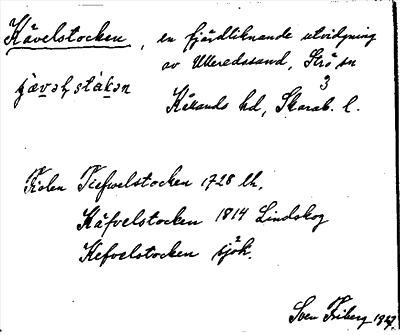 Kävelstocken, en fjärdliknande utvidgning
av Ulleredssund, Strö sn
3
Kållands hd, Skarab. l.
Fiolen Tiefwelstocken 1728 lh,
Käfvelstocken 1814 Lindskog
Kefvelstocken sjök.
Sven Friberg